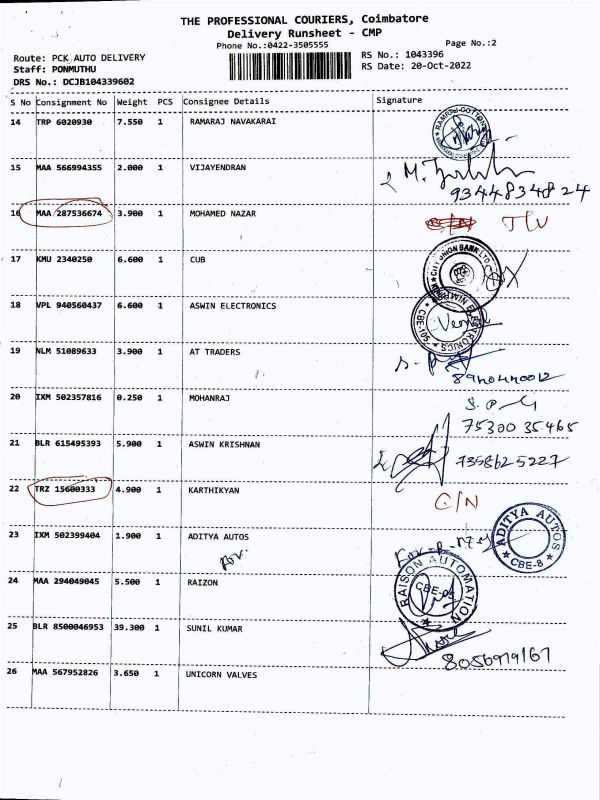 THE PROFESSIONAL COURIERS, Coimbatore
Delivery Runsheet - CMP
Phone No.:0422-3505555
Page No.:2
Route: PCK AUTO DELIVERY
RS No.: 1043396
Staff: PONMUTHU
RS Date: 20-Oct-2022
DRS No.: DCJB104339602
S No Consignment No Weight PCS Consignee Details Signature
14 TRP 6020930 7.550 1 RAMARAJ NAVAKARAI
15 MAA 566994355 2.000 1 VIJAYENDRAN
9344834824
16 MAA 287536674 3.900 1 MOHAMED NAZAR
17 KMU 2340250 6.600 1 CUB
CITY UNION BANK LTD
18 VPL 940560437 6.600 1 ASWIN ELECTRONICS
19 NLM 51089633 3.900 1 AT TRADERS
20 IXM 502357816 0.250 1 MOHANRAJ
75300 35465
21 BLR 615495393 5.900 1 ASWIN KRISHNAN
7358625227
22 TRZ 15600333 4.900 1 KARTHIKYAN C/N
23 IXM 502399404 1.900 1 ADITYA AUTOS
ADITYA AUTOS
CBE-8
24 MAA 294049045 5.500 1 RAIZON
RAISON AUTOMATION
CBE-05
25 BLR 8500046953 39.300 1 SUNIL KUMAR
8056979167
26 MAA 567952826 3.650 1 UNICORN VALVES